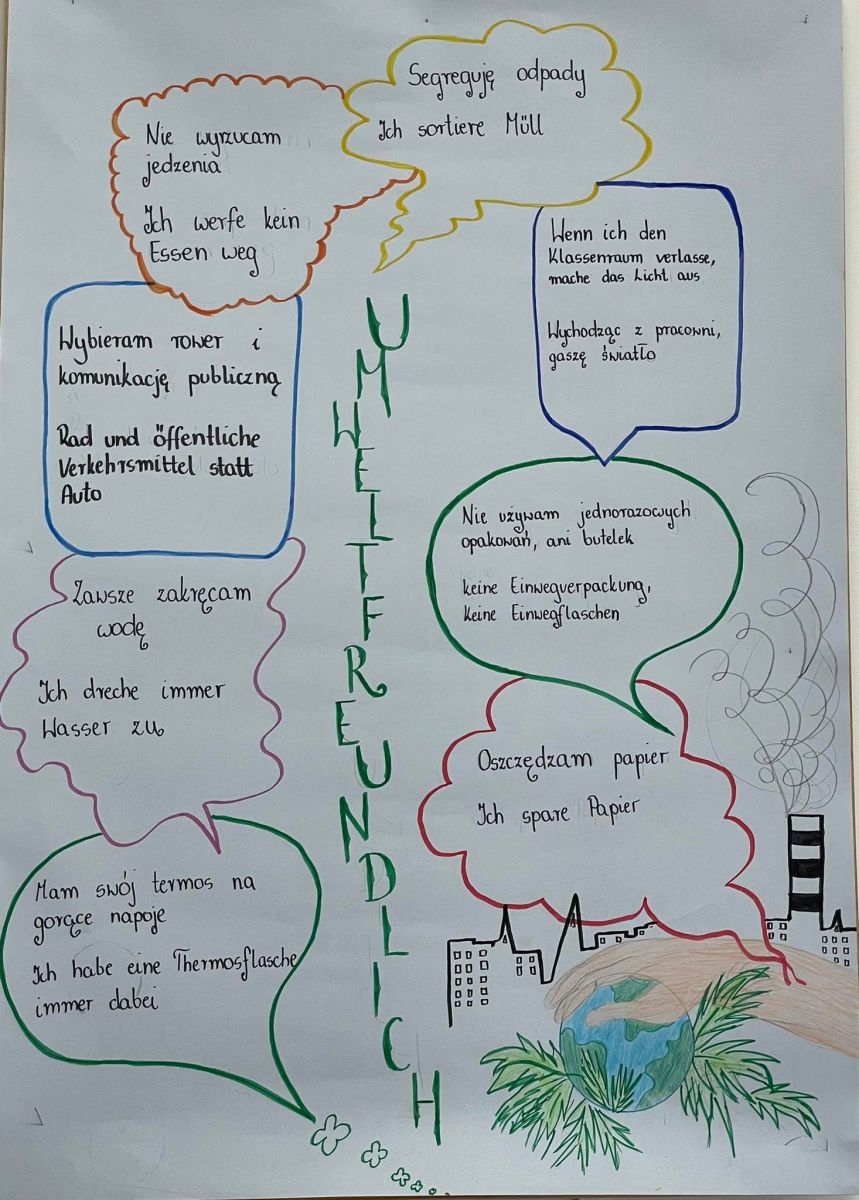 Segreguję odpady
Ich sortiere Müll
Nie wyrzucam
jedzenia
Ich werfe kein
Essen weg
Wenn ich den
Klassenraum verlasse,
mache das Licht aus
Wychodząc z pracowni,
gaszę światło
Wybieram rower i
komunikację publiczną
Rad und öffentliche
Verkehrsmittel statt
Auto
Nie używam jednorazowych
opakowań, ani butelek
keine Einwegverpackung,
keine Einwegflaschen
Zawsze zakręcam
wodę
Ich dreche immer
Wasser zu
Oszczędzam papier
Ich spare Papier
Mam swój termos na
gorące napoje
Ich habe eine Thermosflasche
immer dabei
UMWELTFREUNDLICH